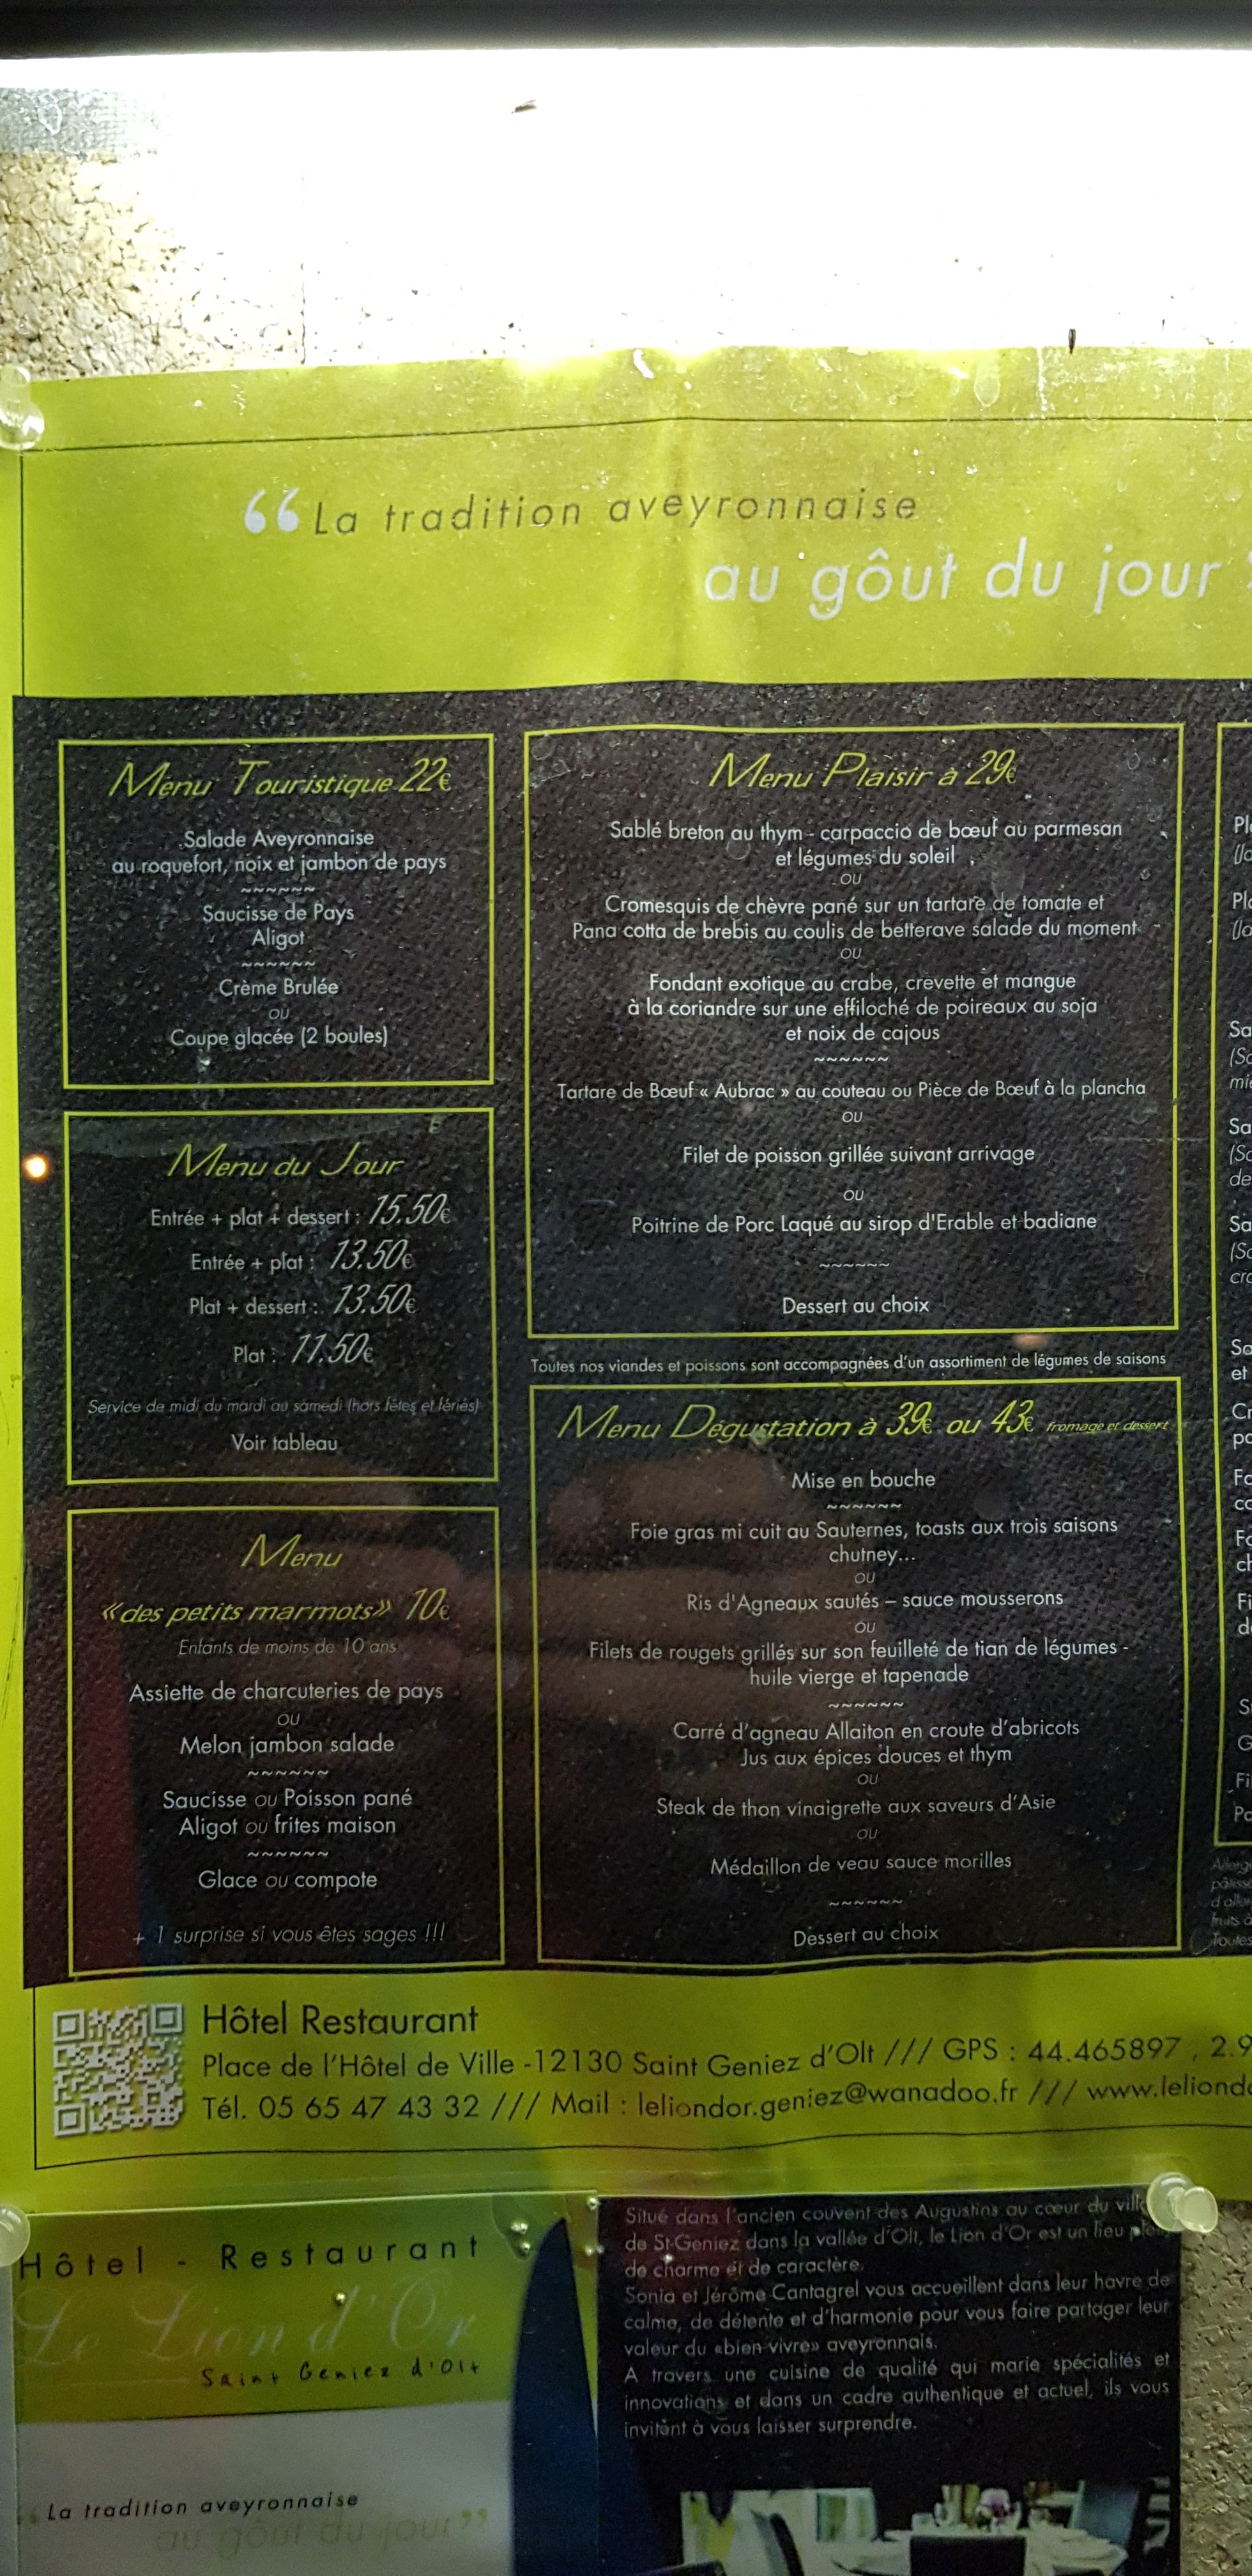 “La tradition aveyronnaise
au gôut du jour
Menu Touristique 22€
Salade Aveyronnaise
au roquefort, noix et jambon de pays
~~~~~~
Saucisse de Pays
Aligot
~~~~~~
Crème Brulée
ou
Coupe glacée (2 boules)
Menu du Jour
Entrée + plat + dessert : 15.50€
Entrée + plat : 13.50€
Plat + dessert : 13.50€
Plat : 11.50€
Service de midi du mardi au samedi (hors fêtes et fériés)
Voir tableau
Menu
«des petits marmots» 10€
Enfants de moins de 10 ans
Assiette de charcuteries de pays
ou
Melon jambon salade
~~~~~~
Saucisse ou Poisson pané
Aligot ou frites maison
~~~~~~
Glace ou compote
+ 1 surprise si vous êtes sages !!!
Menu Plaisir à 29€
Sablé breton au thym - carpaccio de bœuf au parmesan
et légumes du soleil
ou
Cromesquis de chèvre pané sur un tartare de tomate et
Pana cotta de brebis au coulis de betterave salade du moment
ou
Fondant exotique au crabe, crevette et mangue
à la coriandre sur une effiloché de poireaux au soja
et noix de cajous
~~~~~~
Tartare de Bœuf « Aubrac » au couteau ou Pièce de Bœuf à la plancha
ou
Filet de poisson grillée suivant arrivage
ou
Poitrine de Porc Laqué au sirop d'Erable et badiane
~~~~~~
Dessert au choix
Toutes nos viandes et poissons sont accompagnées d'un assortiment de légumes de saisons
Menu Dégustation à 39€ ou 43€ fromage et dessert
Mise en bouche
~~~~~~
Foie gras mi cuit au Sauternes, toasts aux trois saisons
chutney...
ou
Ris d'Agneaux sautés – sauce mousserons
ou
Filets de rougets grillés sur son feuilleté de tian de légumes -
huile vierge et tapenade
~~~~~~
Carré d'agneau Allaiton en croute d'abricots
Jus aux épices douces et thym
ou
Steak de thon vinaigrette aux saveurs d'Asie
ou
Médaillon de veau sauce morilles
~~~~~~
Dessert au choix
Hôtel Restaurant
Place de l'Hôtel de Ville -12130 Saint Geniez d'Olt /// GPS : 44.465897 , 2.9
Tél. 05 65 47 43 32 /// Mail : leliondor.geniez@wanadoo.fr /// www.leliondo
Hôtel - Restaurant
Le Lion d'Or
Saint Geniez d'Olt
“La tradition aveyronnaise
au gôut du jour”
Situé dans l'ancien couvent des Augustins au cœur du
de St-Geniez dans la vallée d'Olt, le Lion d'Or est un lieu
de charme et de caractère.
Sonia et Jérôme Cantagrel vous accueillent dans leur havre de
calme, de détente et d'harmonie pour vous faire partager leur
valeur du «bien-vivre» aveyronnais.
A travers une cuisine de qualité qui marie spécialités et
innovations et dans un cadre authentique et actuel, ils vous
invitent à vous laisser surprendre.